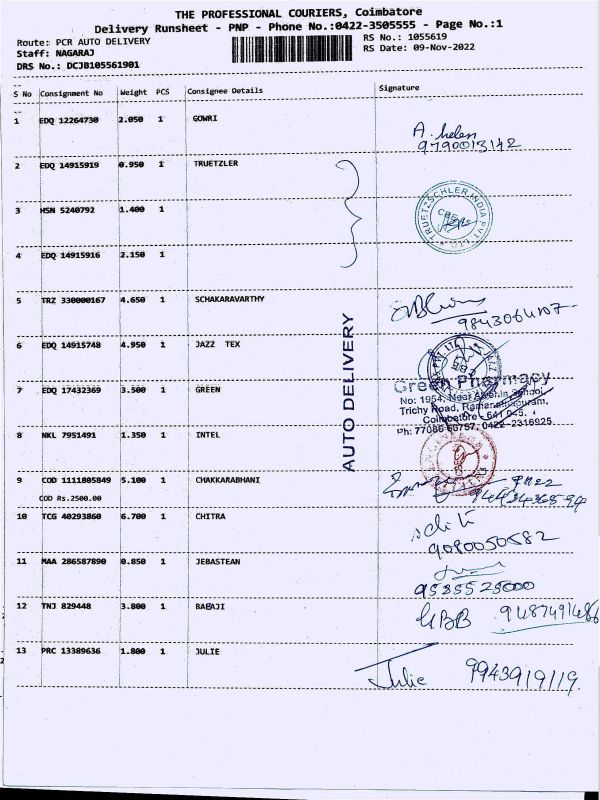 THE PROFESSIONAL COURIERS, Coimbatore
Delivery Runsheet - PNP - Phone No.:0422-3505555 - Page No.:1
Route: PCR AUTO DELIVERY RS No.: 1055619
Staff: NAGARAJ RS Date: 09-Nov-2022
DRS No.: DCJB105561901
S No Consignment No Weight PCS Consignee Details Signature
1 EDQ 12264730 2.050 1 GOWRI
A. helen
9790013142
2 EDQ 14915919 0.950 1 TRUETZLER
3 HSN 5240792 1.400 1
TRUETZSCHLER INDIA PVT.
4 EDQ 14915916 2.150 1
5 TRZ 330000167 4.650 1 SCHAKARAVARTHY
9843064107
6 EDQ 14915748 4.950 1 JAZZ TEX
AUTO DELIVERY
7 EDQ 17432369 3.500 1 GREEN
Green Pharmacy
No: 1954, Near Alvernia School,
Trichy Road, Ramanathapuram,
Coimbatore - 641 045.
Ph: 77086 60757, 0422-2316925
8 NKL 7951491 1.350 1 INTEL
9 COD 1111805849 5.100 1 CHAKKARABHANI
COD Rs.2500.00
10 TCG 40293860 6.700 1 CHITRA
9080050582
11 MAA 286587890 0.850 1 JEBASTEAN
9585525000
12 TNJ 829448 3.800 1 BABAJI
GBB 9487491486
13 PRC 13389636 1.800 1 JULIE
Julie 9943919119.